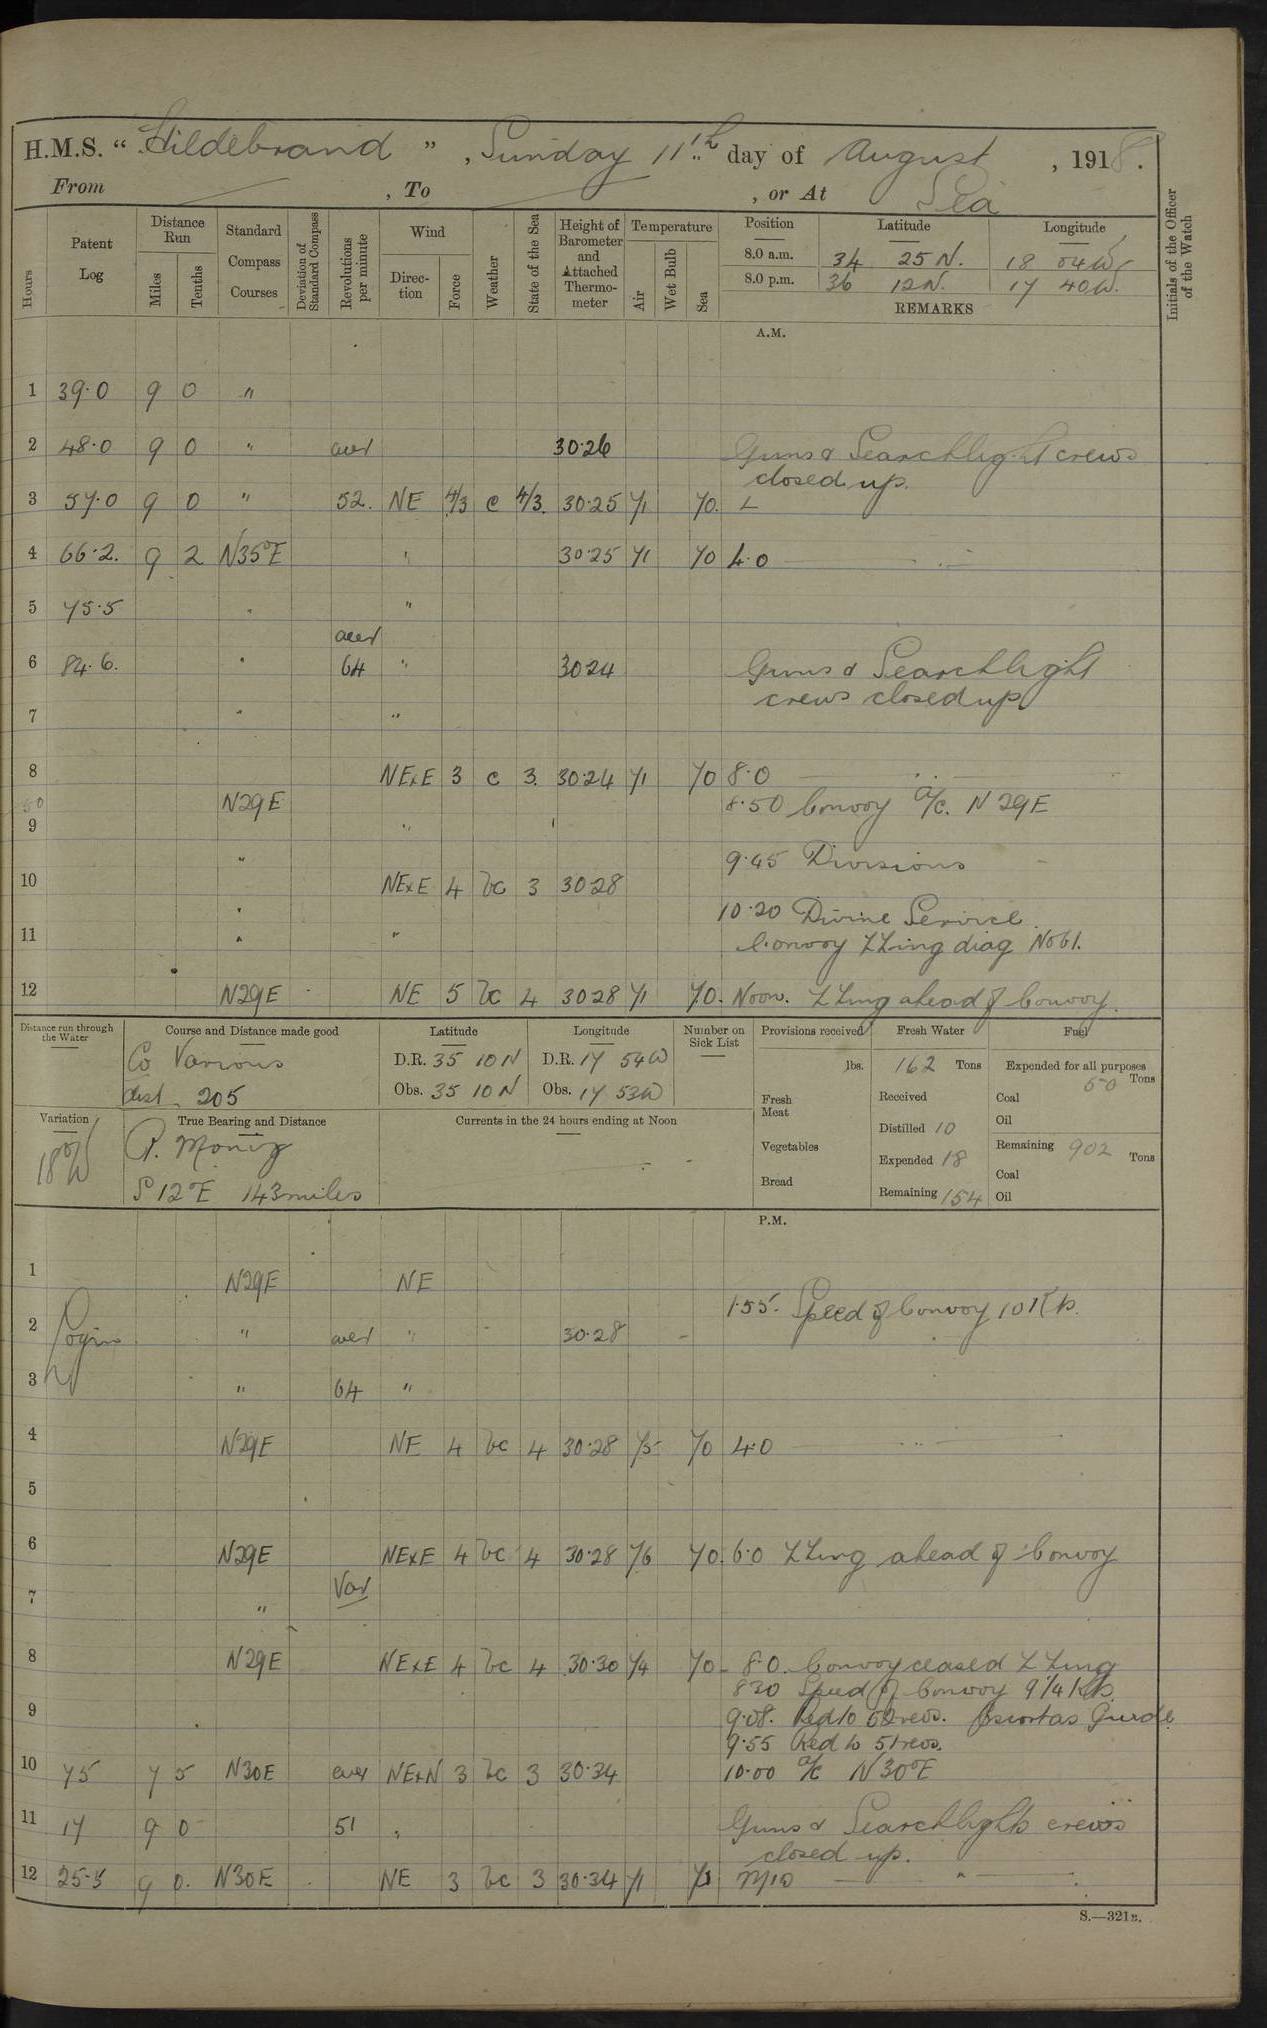 H.M.S. “Hildebrand”, Sunday 11th day of August, 1918.
From , To , or At Sea
Hours
Patent Log
Distance Run
Miles
Tenths
Standard Compass Courses
Deviation of Standard Compass
Revolutions per minute
Wind
Direction
Force
Weather
State of the Sea
Height of Barometer and Attached Thermometer
Temperature
Air
Wet Bulb
Sea
Position Latitude Longitude
8.0 a.m. 34 25 N. 18 04 W
8.0 p.m. 36 12 N. 17 40 W.
REMARKS
Initials of the Officer of the Watch
A.M.
1 39.0 9 0 "
2 48.0 9 0 " aver 30.26 Guns & Searchlight crews
closed up.
3 57.0 9 0 " 52. NE 4/3 c 4/3. 30.25 71 70.
4 66.2. 9 2 N35°E " 30.25 71 70 4.0
5 75.5 " "
aver
6 84.6. " 64 " 30.24 Guns & Searchlight
crews closed up
7 " "
8 NExE 3 c 3. 30.24 71 70 8.0
50 N29E 8.50 Convoy a/c. N 29E
9 "
" 9.45 Divisions
10 NExE 4 bc 3 30.28
" 10.20 Divine Service.
11 " " Convoy ZZing diag No 61.
12 N29E NE 5 bc 4 30.28 71 70. Noon. ZZing ahead of Convoy.
Distance run through the Water
Course and Distance made good
Co Various
dist 205
Latitude
D.R. 35 10 N
Obs. 35 10 N
Longitude
D.R. 17 54W
Obs. 17 53W
Number on Sick List
Provisions received
lbs.
Fresh Meat
Vegetables
Bread
Fresh Water
162 Tons
Received
Distilled 10
Expended 18
Remaining 154
Fuel
Expended for all purposes
50 Tons
Coal
Oil
Remaining 902 Tons
Coal
Oil
Variation
18°W
True Bearing and Distance
P. Moniz
S 12°E 143 miles
Currents in the 24 hours ending at Noon
P.M.
1 N29E NE
1.55. Speed of Convoy 10 Kts.
2 " aver " 30.28
3 " 64 "
4 N29E NE 4 bc 4 30.28 75 70 4.0
5
6 N29E NExE 4 bc 4 30.28 76 70. 6.0 ZZing ahead of Convoy
Var
7 "
8 N29E NExE 4 bc 4 30.30 74 70 8.0. Convoy ceased ZZing
830 Speed of Convoy 9 1/4 Kts.
9 9.08. Red to 52 revs. Escort as Guide
9.55 Red to 51 revs.
10 75 7 5 N30E aver NExN 3 bc 3 30.34 10.00 a/c N30°E
11 17 9 0 51 " Guns & Searchlights crews
closed up.
12 25.5 9 0. N30E NE 3 bc 3 30.34 71 71 Mid
S.—321B.